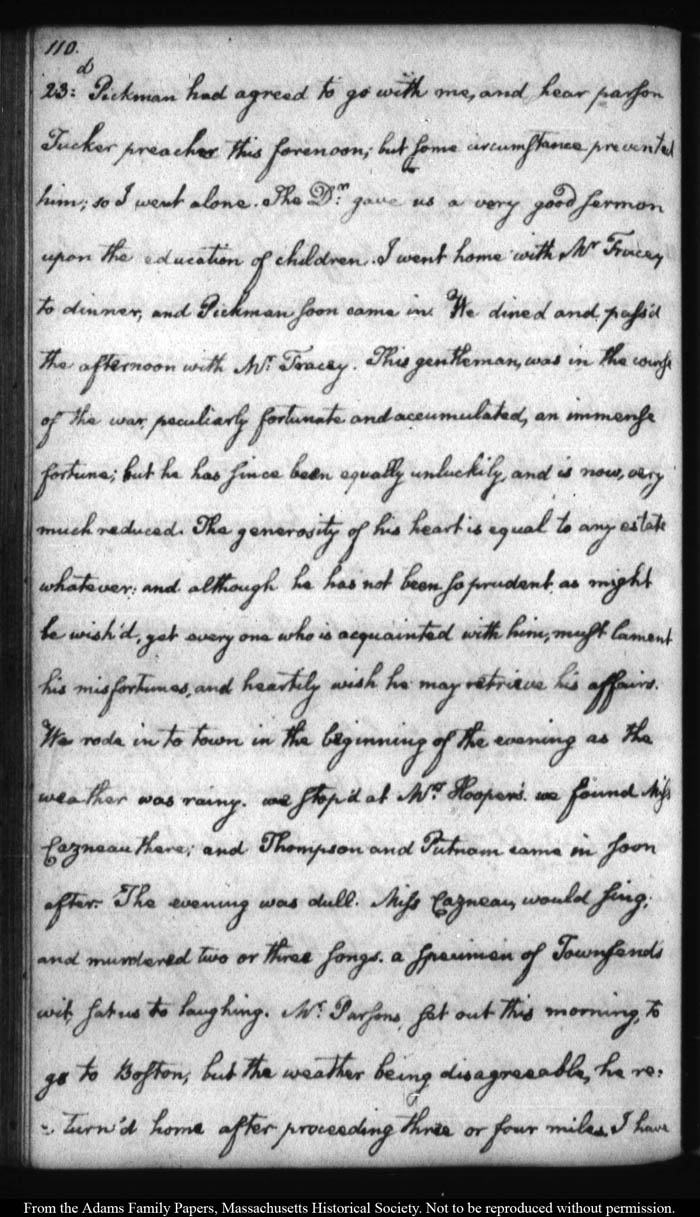 110.
23: d Pickman had agreed to go with me, and hear parson
Tucker preacher this forenoon; but some circumstance prevented
him; so I went alone. The Dr. gave us a very good sermon
upon the education of children. I went home with Mr Tracey
to dinner, and Pickman soon came in. We dined and pass'd
the afternoon with Mr. Tracey. This gentleman, was in the course
of the war, peculiarly fortunate and accumulated, an immense
fortune; but he has since been equally unluckily, and is now, very
much reduced. The generosity of his heart is equal to any estate
whatever: and although he has not been so prudent, as might
be wish'd, yet every one who is acquainted with him, must lament
his misfortunes, and heartily wish he may retrieve his affairs.
We rode in to town in the beginning of the evening as the
weather was rainy. we stop'd at Mrs. Hooper's. we found Miss
Cazneau there; and Thompson and Putnam came in soon
after. The evening was dull. Miss Cazneau, would sing,
and murdered two or three songs. a specimen of Townsends
wit, sat us to laughing. Mr. Parsons, set out this morning, to
go to Boston, but the weather being disagreeable, he re-
turn'd home after proceeding three or four miles. I have
From the Adams Family Papers, Massachusetts Historical Society. Not to be reproduced without permission.